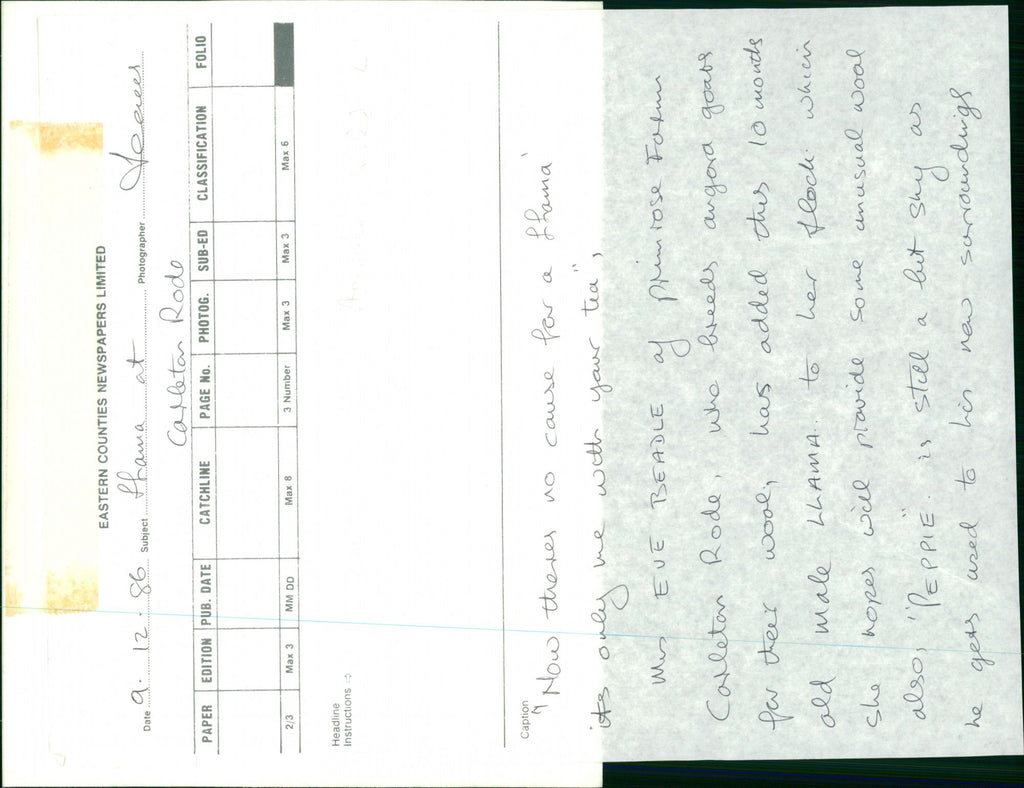 EASTERN COUNTIES NEWSPAPERS LIMITED
Date 9. 12. 86 Subject Lhama at Photographer
Carleton Rode
PAPER EDITION PUB. DATE CATCHLINE PAGE No. PHOTOG. SUB-ED CLASSIFICATION FOLIO
2/3 Max 3 MM DD Max 8 3 Number Max 3 Max 3 Max 6
Headline
Instructions ⇨
Caption
"Now theres no cause for a Lhama'
its only me with your tea",
Mrs EVE BEADLE of Primrose Farm
Carleton Rode, who breeds angora goats
for their wool, has added this 10 months
old male LLAMA.. to her flock. which
she hopes will provide some unusual wool
also, 'PEPPIE' is still a bit shy as
he gets used to his new surroundings